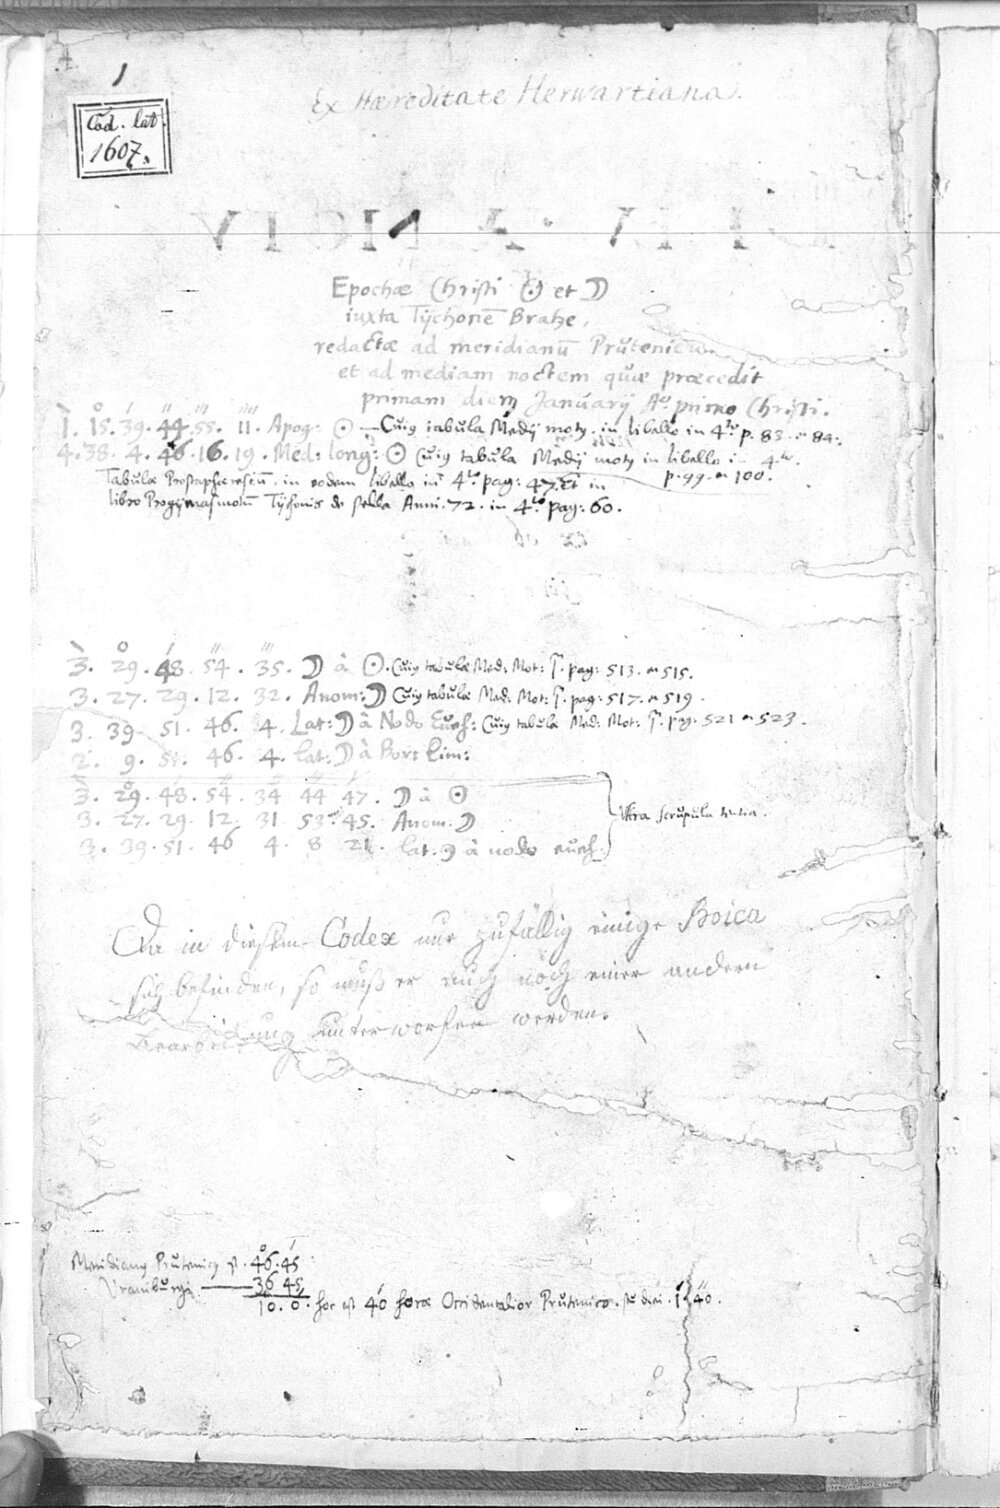 1
Cod. lat.
1607.
Ex Hæreditate Herwartiana.
Epochæ Christi ☉ et ☽
iuxta Tÿchonē Brahe,
redactæ ad meridianū Prutenicū
et ad mediam noctem quæ præcedit
primam diem Januarij Aº primo Christi.
1. 15. 39. 44. 55. 11. Apog: ☉ — Cuiꝰ tabula Medij motꝰ in libello in 4to p. 83. et 84.
4. 38. 4. 46. 16. 19. Med: long: ☉ Cuiꝰ tabula Medij motꝰ in libello in 4to.
p. 99. et 100.
Tabula Prostaphæresiū, in eodem libello in 4to pag: 47. Et in
libro Progÿmasmatū Tÿchonis de stella Anni. 72. in 4to pag: 60.
3. 29. 48. 54. 35. ☽ à ☉. Cuiꝰ tabula Med: Mot: f. pag: 513. et 515.
3. 27. 29. 12. 32. Anom: ☽ Cuiꝰ tabula Med: Mot: f. pag: 517. et 519.
3. 39. 51. 46. 4. Lat: ☽ à Nodo Eueh: Cuiꝰ tabula Med: Mot: f. pag. 521 et 523.
2. 9. 51. 46. 4. Lat: ☽ à Bor: Lim:
3. 29. 48. 54. 34 44 47. ☽ à ☉
3. 27. 29. 12. 31 53. 45. Anom: ☽
Vltra scrupula tertia.
3. 39. 51. 46 4. 8 21. Lat. ☽ à nodo eueh.
Da in diesem Codex nur zufällig einige Boica
sich befinden, so muß er auch noch einer andern
Bearbeitung unterworfen werden.
Meridianꝰ Prutenicꝰ est. 46. 45
Vraniburgi — 36 45,
10. 0. hoc est 40 horæ Occidentalior Prutenico. seu diei. 1. 40.